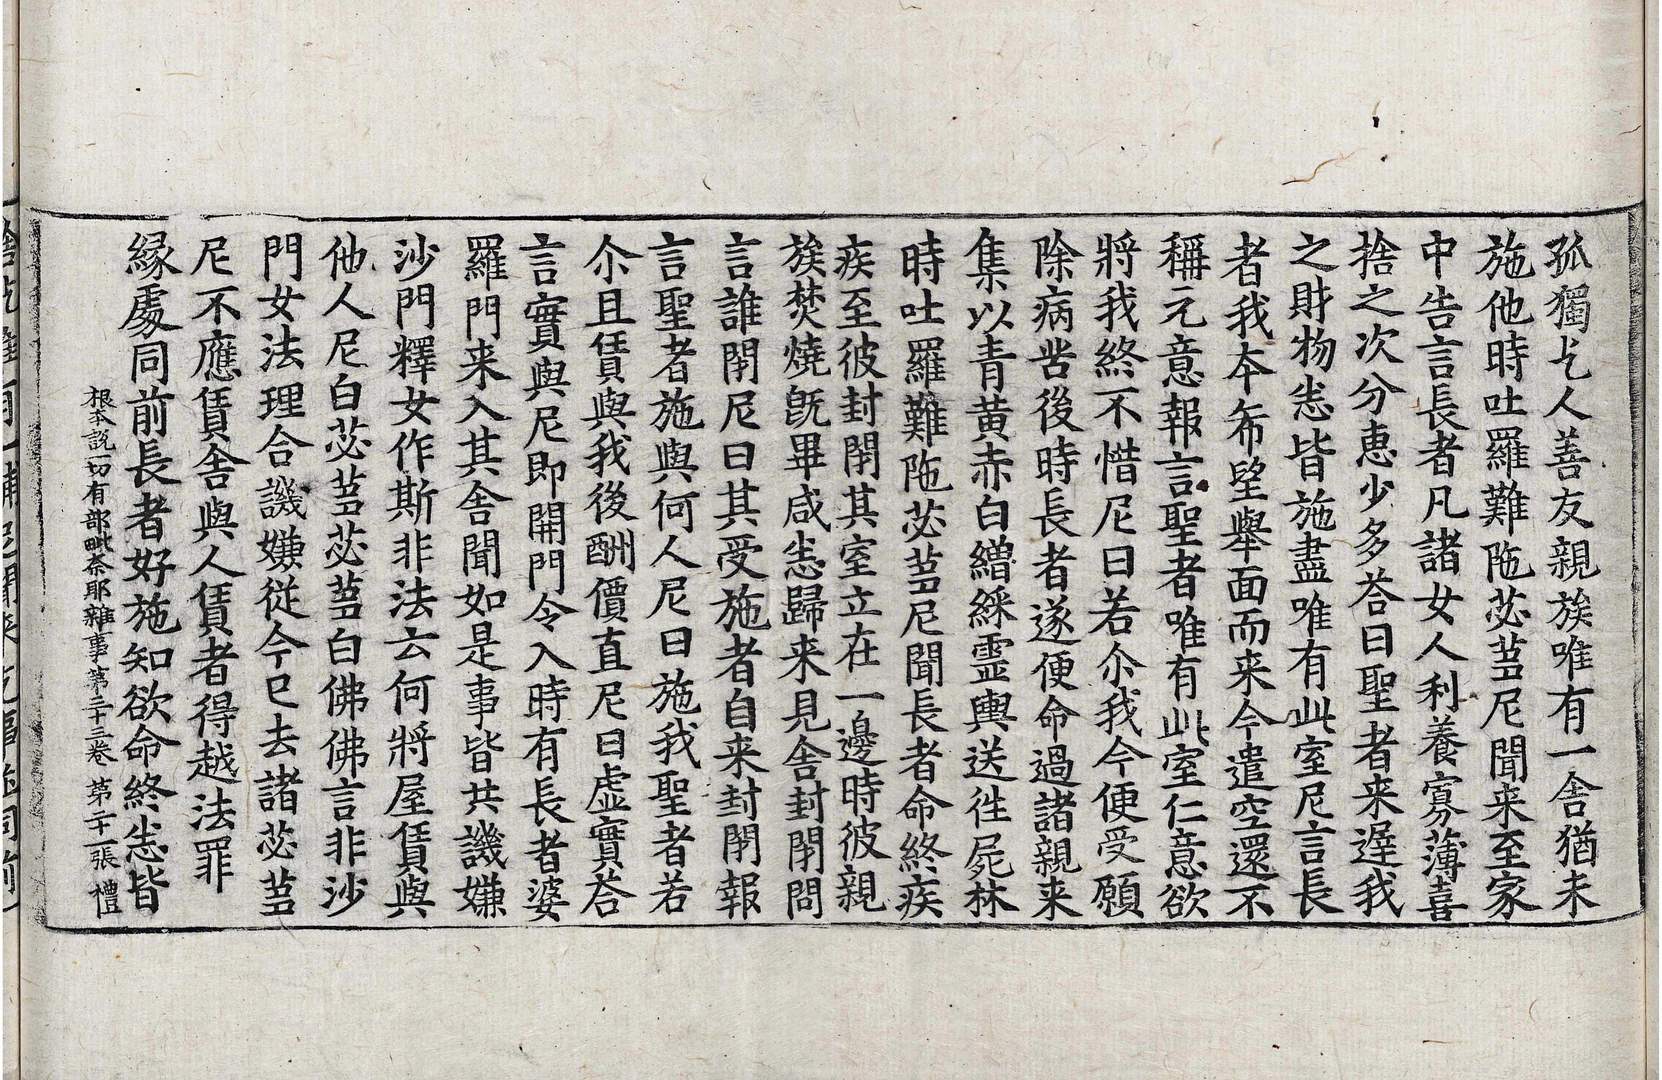 孤獨乞人善友親族唯有一舍猶未
施他時吐羅難陁苾蒭尼聞来至家
中告言長者凡諸女人利養寡薄喜
捨之次分惠少多荅曰聖者来遅我
之財物悉皆施盡唯有此室尼言長
者我夲希望舉面而来今遣空還不
稱元意報言聖者唯有此室仁意欲
將我終不惜尼曰若尒我今便受願
除病苦後時長者遂便命過諸親来
集以青黄赤白繒綵靈輿送往屍林
時吐羅難陁苾蒭尼聞長者命終疾
疾至彼封閇其室立在一邊時彼親
族焚燒旣畢咸悉歸来見舍封閇問
言誰閇尼曰其受施者自来封閇報
言聖者施與何人尼曰施我聖者若
尒且賃與我後酬價直尼曰虛實荅
言實與尼即開門令入時有長者婆
羅門来入其舍聞如是事皆共譏嫌
沙門釋女作斯非法云何將屋賃與
他人尼白苾蒭苾蒭白佛佛言非沙
門女法理合譏嫌從今已去諸苾蒭
尼不應賃舍與人賃者得越法罪
緣處同前長者好施知欲命終悉皆
根夲説一切有部毗奈耶雜事第三十三卷 第二十一張 禮